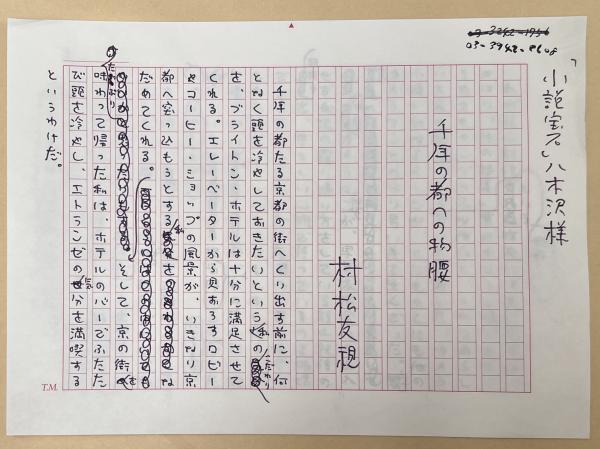 03-3942-
「小説宝石」八木沢様
千年の都への物腰
村松友視
千年の都たる京都の街へくり出す前に、何
となく頭を冷やしておきたいという私の
を、ブライトン・ホテルは十分に満足させて
くれる。エレベーターから見おろすロビー
やコーヒー・ショップの風景が、いきなり京
都へ突っ込もうとする私を な
だめてくれる。
そして、京の街を
味わって帰った私は、ホテルのバーでふたた
び頭を冷やし、エトランゼの気分を満喫する
というわけだ。
T.M.